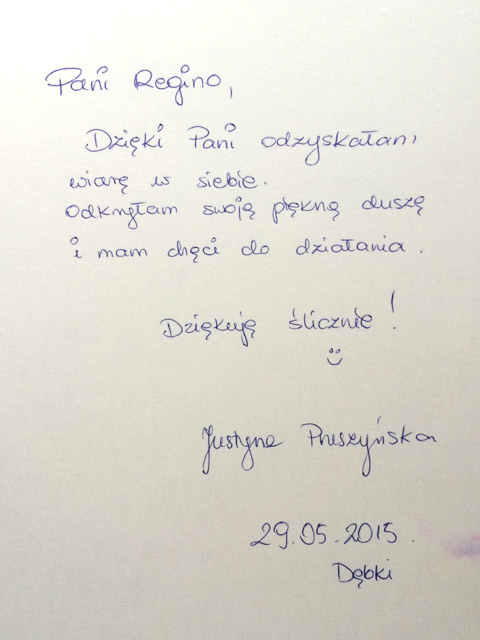 Pani Regino,
Dzięki Pani odzyskałam
wiarę w siebie.
Odkryłam swoją piękną duszę
i mam chęci do działania.
Dziękuję ślicznie!
Justyna Pruszyńska
29.05.2015.
Dębki